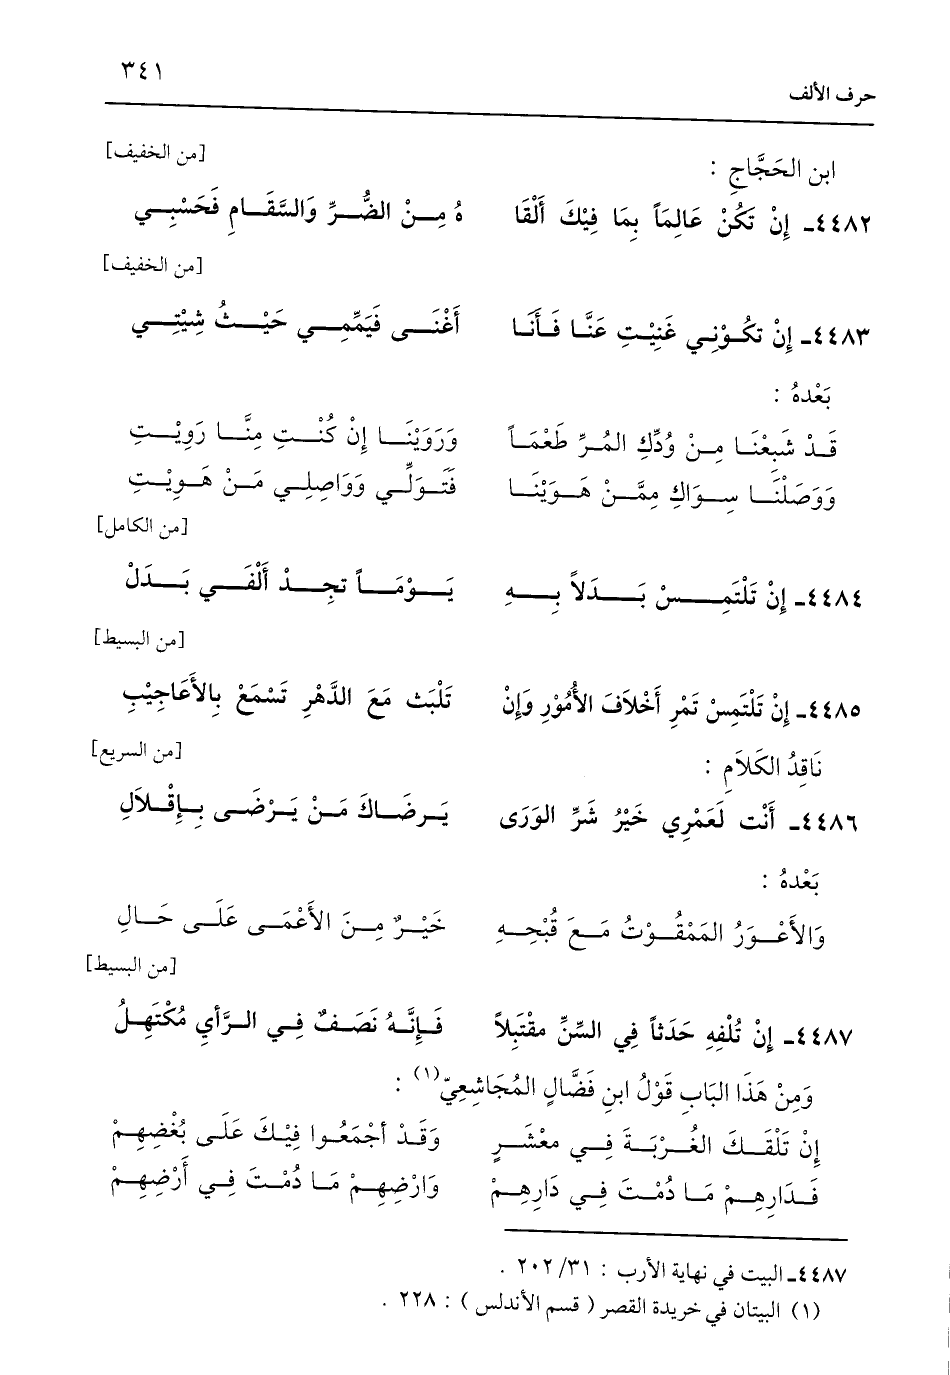 ٣٤١
حرف الألف
[من الخفيف]
ابن الحَجَّاجِ :
٤٤٨٢ـ إِنْ تَكُنْ عَالِمَاً بِمَا فِيْكَ أَلْقَا هُ مِنْ الضُّرِّ وَالسَّقَامِ فَحَسْبِي
[من الخفيف]
٤٤٨٣ـ إِنْ تكُوْنِي غَنِيْتِ عَنَّا فَأَنَا أَغْنَى فَيَمِّمِي حَيْثُ شِيْتِي
بَعْدهُ :
قَدْ شَبِعْنَا مِنْ وُدِّكِ المُرِّ طَعْمَاً وَرَوَيْنَا إِنْ كُنْتِ مِنَّا رَوِيْتِ
وَوَصَلْنَا سِوَاكِ مِمَّنْ هَوَيْنَا فَتَوَلِّي وَوَاصِلِي مَنْ هَوِيْتِ
[من الكامل]
٤٤٨٤ـ إِنْ تَلْتَمِسْ بَدَلاً بِهِ يَوْمَاً تجِدْ أَلْفَي بَدَلْ
[من البسيط]
٤٤٨٥ـ إِنْ تَلْتَمِسْ تَمْرِ أَخْلَافَ الأُمُوْرِ وَإِنْ تَلْبَث مَعَ الدَّهْرِ تَسْمَعْ بِالأَعَاجِيْبِ
[من السريع]
نَاقِدُ الكَلاَمِ :
٤٤٨٦ـ أَنْت لَعَمْرِي خَيْرُ شَرِّ الوَرَى يَرضَاكَ مَنْ يَرْضَى بِإِقْلاَلِ
بَعْدهُ :
وَالأَعْوَرُ المَمْقُوْتُ مَعَ قُبْحِهِ خَيْرٌ مِنَ الأَعْمَى عَلَى حَالِ
[من البسيط]
٤٤٨٧ـ إِنْ تُلْفِهِ حَدَثاً فِي السِّنِّ مقْتَبِلاً فَإِنَّهُ نَصَفٌ فِي الرَّأي مُكْتَهِلُ
وَمِنْ هَذَا البَابِ قَوْلُ ابنِ فَضَّالٍ المُجَاشِعِيّ(١) :
إِنْ تَلْقَكَ الغُرْبَةَ فِي معْشَرٍ وَقَدْ أجْمَعُوا فِيْكَ عَلَى بُغْضِهِمْ
فَدَارِهِمْ مَا دُمْتَ فِي دَارِهِمْ وَارْضِهِمْ مَا دُمْتَ فِي أَرْضِهِمْ
٤٤٨٧ـ البيت في نهاية الأرب : ٢٠٢/٣١ .
(١) البيتان في خريدة القصر ( قسم الأندلس ) : ٢٢٨ .